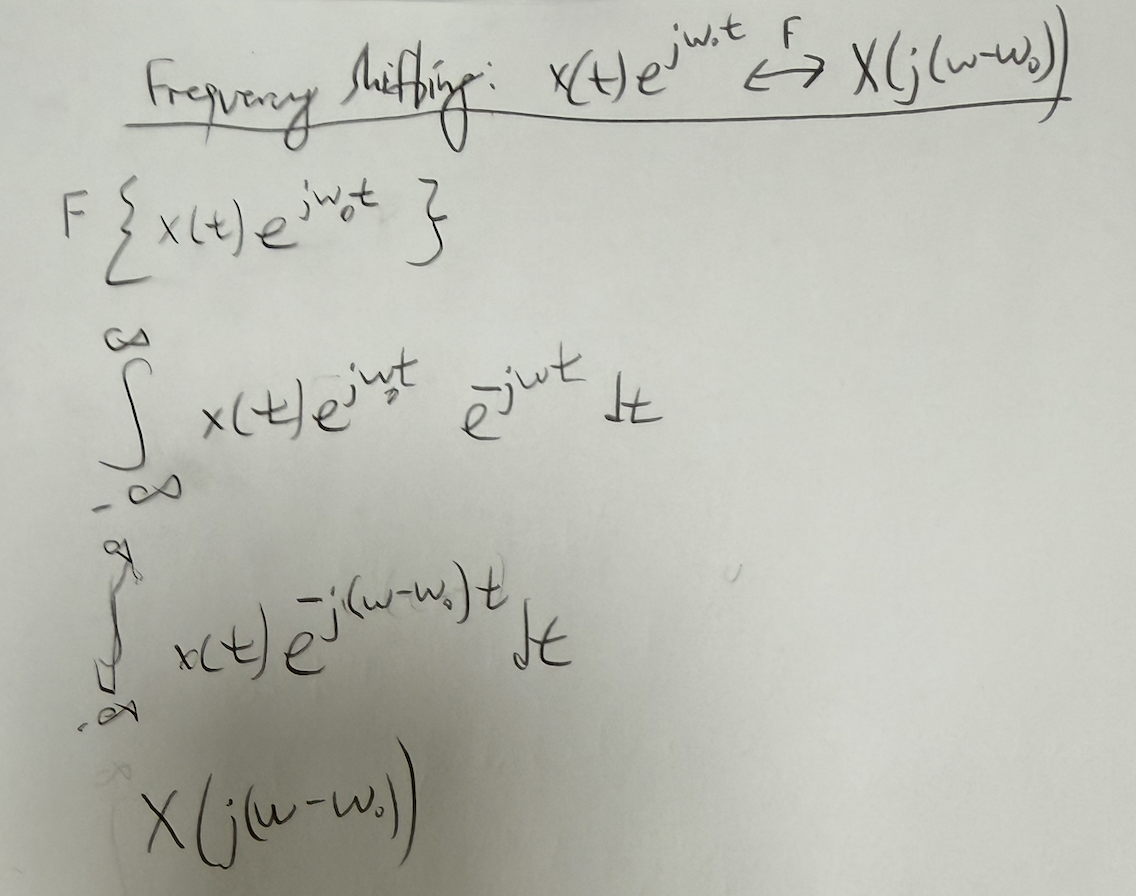 Frequency Shifting: x(t)e^{jω₀t} ⟷^F X(j(ω-ω₀))
F{x(t)e^{jω₀t}}
∫_{-∞}^{∞} x(t)e^{jω₀t} e^{-jωt} dt
∫_{-∞}^{∞} x(t)e^{-j(ω-ω₀)t} dt
X(j(ω-ω₀))